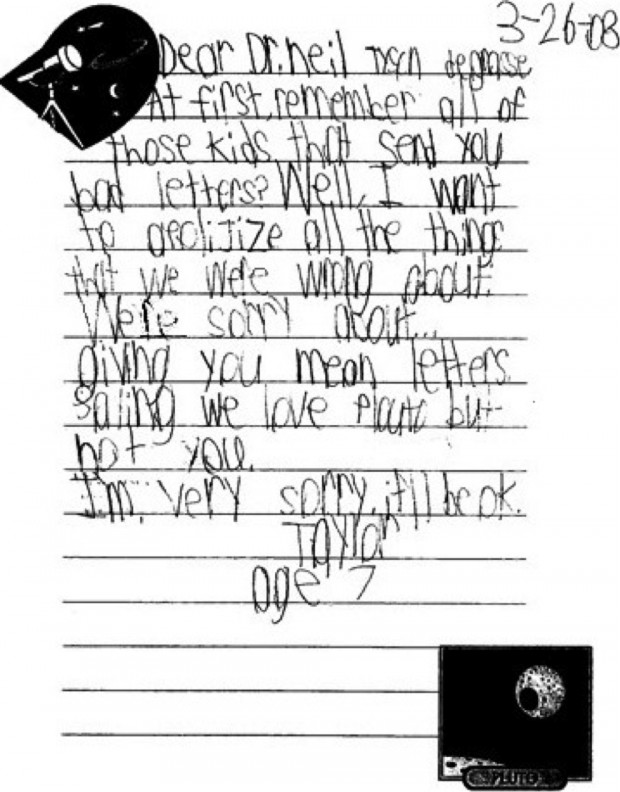 3-26-08
Dear Dr. Neil tysn degrase
At first, remember all of
those kids, that send you
bad letters? Well, I want
to apolijize all the things
that we were wrong about.
We're sorry about...
giving you mean letters
saiing we love Plauto but
not you.
I'm very sorry, it'll be ok.
Taylor
age 7
PLUTO